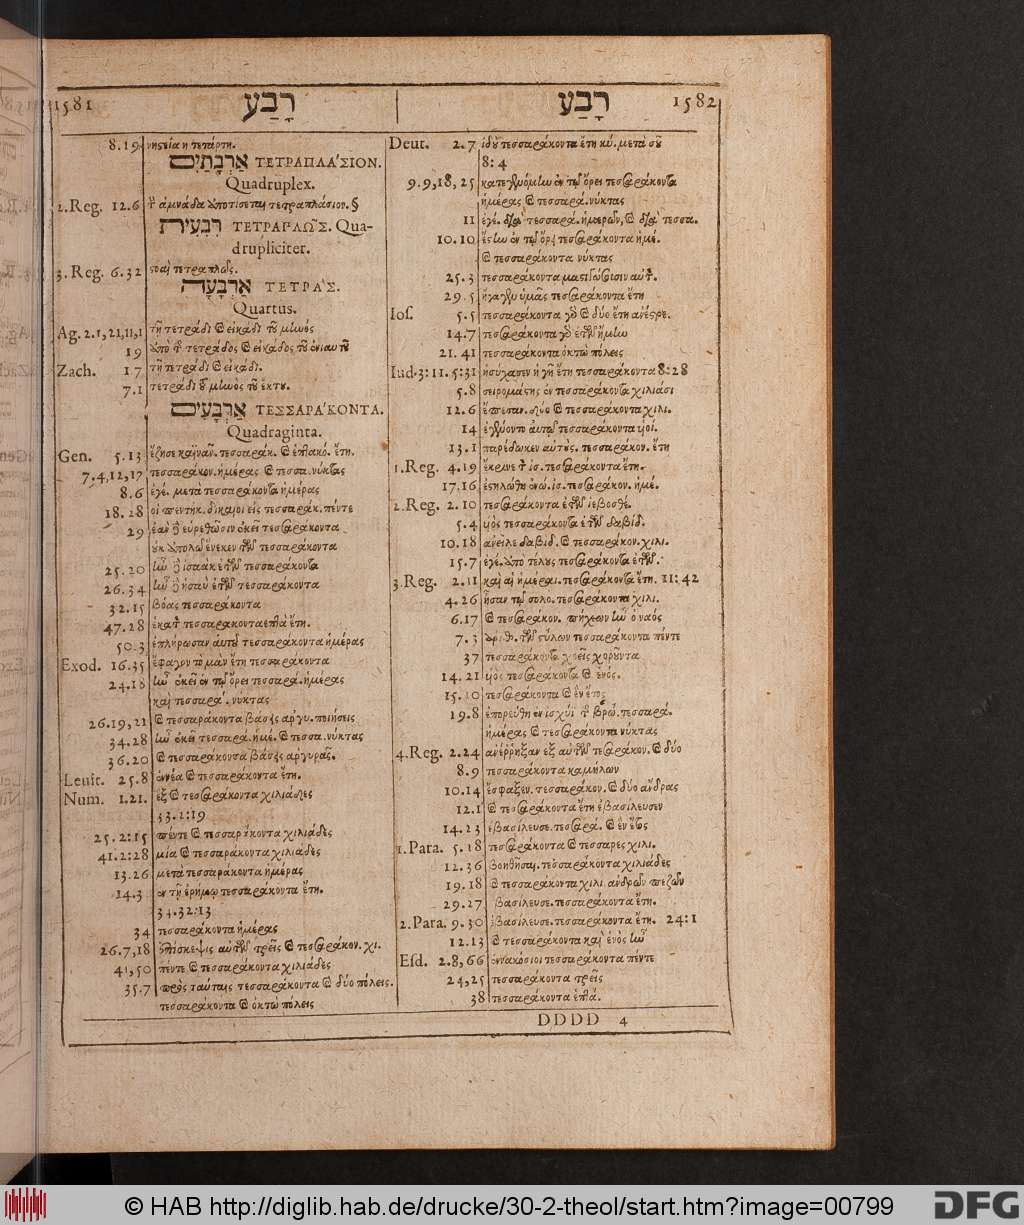 1581 רָבַע
8.19 νηστεία ἡ τετάρτη.
אַרְבָּתַיִם ΤΕΤΡΑΠΛΑ'ΣΙΟΝ.
Quadruplex.
2.Reg. 12.6 τ̀ ἀμνάδα ἀποτίσεται τετραπλάσιον. §
רְבִעִית ΤΕΤΡΑΠΛΩ͂Σ. Qua-
drupliciter.
3. Reg. 6.32 τετραπλῶς.
אַרְבָּעָה ΤΕΤΡΑ'Σ.
Quartus.
Ag. 2.1,21,11,1 τῇ τετράδι καὶ εἰκάδι τοῦ μηνὸς
19 ἀπὸ τ̀ τετράδος καὶ εἰκάδος τοῦ
Zach. 1 7 τῇ τετράδι καὶ εἰκάδι.
7.1 τετράδι τοῦ μηνὸς τοῦ ἕκτου.
אַרְבָּעִים ΤΕΣΣΑΡΑ'ΚΟΝΤΑ.
Quadraginta.
Gen. 5.13 ἔζησε καϊνᾶν. τεσσαράκ. καὶ ἑπτακό. ἔτη.
7.4,12,17 τεσσαράκον. ἡμέρας καὶ τεσσα. νύκτας
8.6 ἐγέ. μετὰ τεσσαράκοντα ἡμέρας
18.28 οἱ πεντήκ. δίκαιοι εἰς τεσσαράκ. πέντε
29 ἐὰν δὲ εὑρεθῶσιν ἐκεῖ τεσσαράκοντα
οὐκ ἀπολῶ ἕνεκεν τῶν τεσσαράκοντα
25.20 ἦν δὲ ἰσαὰκ ἐτῶν τεσσαράκοντα
26.34 ἦν δὲ ἡσαῦ ἐτῶν τεσσαράκοντα
32.15 βόας τεσσαράκοντα
47.28 ἑκατ̀ τεσσαρακονταεπτὰ ἔτη.
50.3 ἐπλήρωσαν αὐτοῦ τεσσαράκοντα ἡμέρας
Exod. 16.35 ἔφαγον τὸ μὰν ἔτη τεσσαράκοντα
24.18 ἦν ἐκεῖ ἐν τῷ ὄρει τεσσαρά. ἡμέρας
καὶ τεσσαρά. νύκτας
26.19,21 καὶ τεσσαράκοντα βάσεις ἀργυ. ποιήσεις
34.28 ἦν ἐκεῖ τεσσαρά. ἡμέ. καὶ τεσσα. νύκτας
36.20 καὶ τεσσαράκοντα βάσεις ἀργυρᾶς.
Leuit. 25.8 ἐννέα καὶ τεσσαράκοντα ἔτη.
Num. 1.21. ἓξ καὶ τεσσαράκοντα χιλιάδες
33.2:19
25.2:15 πέντε καὶ τεσσαράκοντα χιλιάδες
41.2:28 μία καὶ τεσσαράκοντα χιλιάδες
13.26 μετὰ τεσσαράκοντα ἡμέρας
14.3 ἐν τῇ ἐρήμῳ τεσσαράκοντα ἔτη.
34.32:13
34 τεσσαράκοντα ἡμέρας
26.7,18 ἐπίσκεψις αὐτῶν τρεῖς καὶ τεσσαράκον. χι.
41,50 πέντε καὶ τεσσαράκοντα χιλιάδες
35.7 πρὸς ταύταις τεσσαράκοντα καὶ δύο πόλεις.
τεσσαράκοντα καὶ ὀκτὼ πόλεις
רָבַע 1582
Deut. 2.7 ἰδοὺ τεσσαράκοντα ἔτη κύ. μετὰ σοῦ
8:4
9.9,18,25 κατεγινόμην ἐν τῷ ὄρει τεσσαράκοντα
ἡμέρας καὶ τεσσαρά. νύκτας
11 ἐγέ. διὰ τεσσαρά. ἡμερῶν, καὶ διὰ τεσσα.
10.10 ἕστην ἐν τῷ ὄρει τεσσαράκοντα ἡμέ.
καὶ τεσσαράκοντα νύκτας
25.3 τεσσαράκοντα μαστιγώσουσιν αὐτ̀.
29.5 ἤγαγεν ὑμᾶς τεσσαράκοντα ἔτη
Ios. 5.5 τεσσαράκοντα γὰρ καὶ δύο ἔτη ἀνέστρε.
14.7 τεσσαράκοντα γὰρ ἐτῶν ἤμην
21.41 τεσσαράκοντα ὀκτὼ πόλεις
Iud.3:11.5:31 ἡσύχασεν ἡ γῆ ἔτη τεσσαράκοντα 8:28
5.8 σειρομάστης ἐν τεσσαράκοντα χιλιάσι
12.6 ἔπεσαν. δύο καὶ τεσσαράκοντα χιλι.
14 ἐγένοντο αὐτῷ τεσσαράκοντα υἱοί.
13.1 παρέδωκεν αὐτοὺς. τεσσαράκον. ἔτη
1.Reg. 4.19 ἔκρινε τ̀ ἰσ. τεσσαράκοντα ἔτη.
17.16 ἐστηλώθη ἐνώ. ἰσ. τεσσαράκον. ἡμέ.
2.Reg. 2.10 τεσσαράκοντα ἐτῶν ἰεβοσθέ.
5.4 υἱὸς τεσσαράκοντα ἐτῶν δαβίδ.
10.18 ἀνεῖλε δαβίδ. καὶ τεσσαράκον. χιλι.
15.7 ἐγέ. ἀπὸ τέλους τεσσαράκοντα ἐτῶν.
3.Reg. 2.11 καὶ αἱ ἡμέραι. τεσσαράκοντα ἔτη. 11:42
4.26 ἦσαν τῷ σολο. τεσσαράκοντα χιλι.
6.17 καὶ τεσσαράκον. πήχεων ἦν ὁ ναός
7.3 ἀριθ. τῶν στύλων τεσσαράκοντα πέντε
37 τεσσαράκοντα χοεῖς χοροῦντα
14.21 υἱὸς τεσσαράκοντα καὶ ἑνὸς.
15.10 τεσσαράκοντα καὶ ἓν ἔτος
19.8 ἐπορεύθη ἐν ἰσχύϊ τ̀ βρώ. τεσσαρά.
ἡμέρας καὶ τεσσαράκοντα νύκτας
4.Reg. 2.24 ἀνέῤῥηξαν ἐξ αὐτῶν τεσσαράκον. καὶ δύο
8.9 τεσσαράκοντα καμήλων
10.14 ἔσφαξεν. τεσσαράκον. καὶ δύο ἄνδρας
12.1 καὶ τεσσαράκοντα ἔτη ἐβασίλευσεν
14.23 ἐβασίλευσε. τεσσαρά. καὶ ἓν ἔτος
1.Para. 5.18 τεσσαράκοντα καὶ τέσσαρες χιλι.
12.36 βοηθῆσαι. τεσσαράκοντα χιλιάδες
19.18 καὶ τεσσαράκοντα χιλι. ἀνδρῶν πεζῶν
29.27 βασίλευσε. τεσσαράκοντα ἔτη.
2.Para. 9.30 ἐβασίλευσε. τεσσαράκοντα ἔτη. 24:1
12.13 καὶ τεσσαράκοντα καὶ ἑνὸς ἦν
Esd. 2.8,66 ἐννακόσιοι τεσσαράκοντα πέντε
24,25 τεσσαράκοντα τρεῖς
38 τεσσαράκοντα ἑπτά.
DDDD 4
© HAB http://diglib.hab.de/drucke/30-2-theol/start.htm?image=00799
DFG